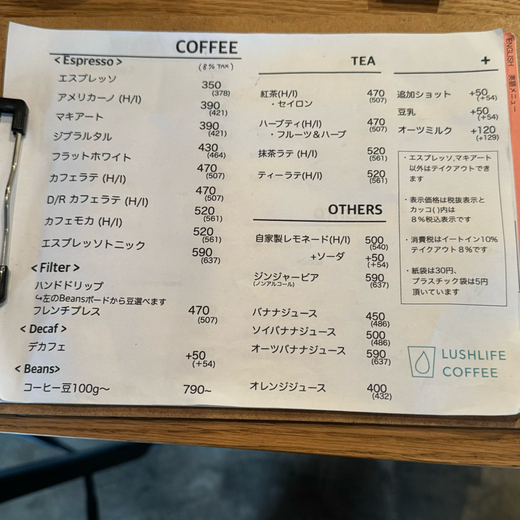 COFFEE
< Espresso >
(8% TAX)
エスプレッソ 350
(378)
アメリカーノ (H/I) 390
(421)
マキアート 390
(421)
ジブラルタル 430
(464)
フラットホワイト 470
(507)
カフェラテ (H/I) 470
(507)
D/R カフェラテ (H/I) 520
(561)
カフェモカ (H/I) 520
(561)
エスプレッソトニック 590
(637)
< Filter >
ハンドドリップ
↪左のBeansボードから豆選べます
フレンチプレス 470
(507)
< Decaf >
デカフェ +50
(+54)
< Beans>
コーヒー豆100g～ 790~
TEA
紅茶(H/I) 470
・セイロン (507)
ハーブティ(H/I) 470
・フルーツ＆ハーブ (507)
抹茶ラテ (H/I) 520
(561)
ティーラテ(H/I) 520
(561)
OTHERS
自家製レモネード(H/I) 500
(540)
+ソーダ +50
(+54)
ジンジャービア 590
(ノンアルコール) (637)
バナナジュース 450
(486)
ソイバナナジュース 500
(486)
オーツバナナジュース 590
(637)
オレンジジュース 400
(432)
+
追加ショット +50
(+54)
豆乳 +50
(+54)
オーツミルク +120
(+129)
・エスプレッソ,マキアート
以外はテイクアウトでき
ます
・表示価格は税抜表示と
カッコ( )内は
８％税込表示です
・消費税はイートイン10%
テイクアウト８％です
・紙袋は30円、
プラスチック袋は5円
頂いています
LUSHLIFE
COFFEE
ENGLISH 英語メニュー